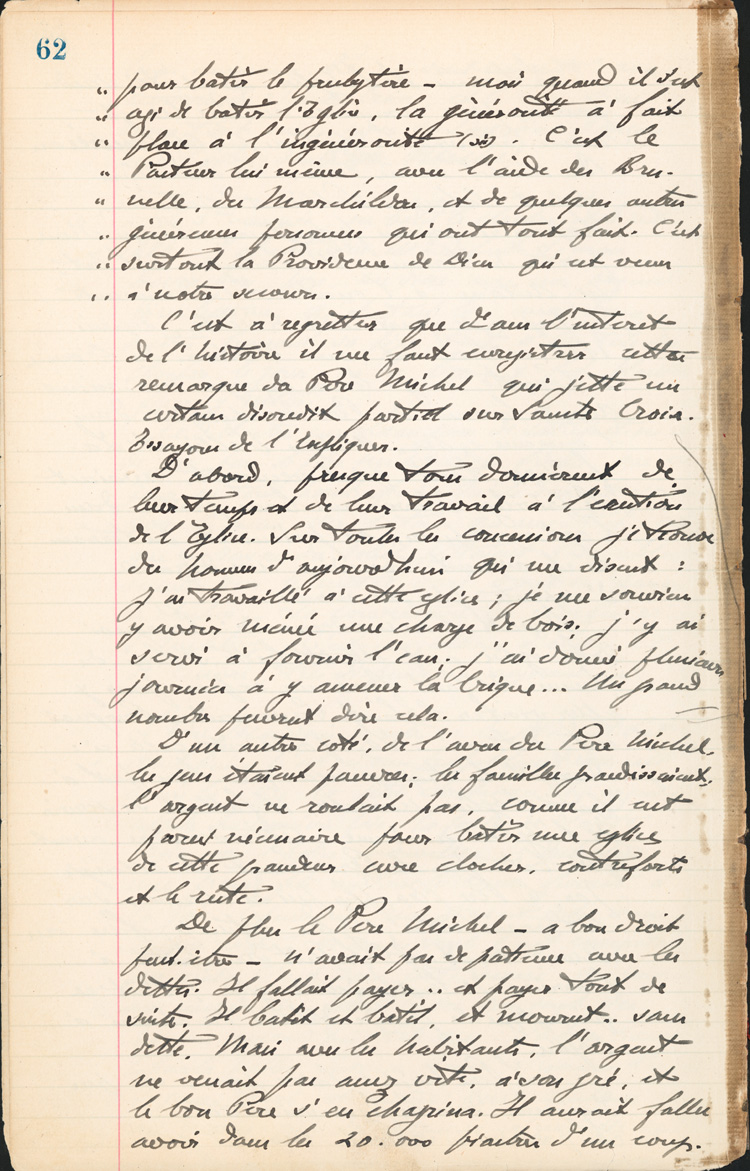 62
" pour batir le presbytère – mais quand il s'est
" agi de batir l'Eglise, la générosité à fait
" place à l'ingénérosité (sic). C'est le
" Pasteur lui même, avec l'aide des Bru-
" nelle, des Marchildon, et de quelques autres
" généreuses personnes qui ont tout fait. C'est
" surtout la Providence de Dieu qui est venu
" à notre secours.
C'est à regretter que dans l'interet
de l'histoire il me faut enregistrer cette
remarque du Père Michel qui jette un
certain discredit partiel sur Sainte Croix.
Essayons de l'Expliquer.
D'abord, presque tous donnèrent de
leur temps et de leur travail à l'erection
de l'Eglise. Sur toutes les concessions je trouve
des hommes d'aujourdhui qui me disent :
j'ai travaillé à cette eglise ; je me souviens
y avoir méné une charge de bois ; j'y ai
servi à fournir l'eau ; j'ai donné plusieurs
journées à y amener la brique... Un grand
nombre peuvent dire cela.
D'un autre coté, de l'aveu du Père Michel,
les gens étaient pauvres ; les familles grandissaient ;
l'argent ne roulait pas, comme il eut
paru nécessaire pour bâtir une eglise
de cette grandeur avec clocher, contreforts
et le reste.
De plus le Père Michel – a bon droit
peut-etre – n'avait pas de patience avec les
dettes. Il fallait payer .. et payer tout de
suite. Il batit et batit, et mourut .. sans
dette. Mais avec les habitants, l'argent
ne venait pas assez vite, à son gré, et
le bon Père s'en chagrina. Il aurait fallu
avoir dans les 20.000 piastres d'un coup.